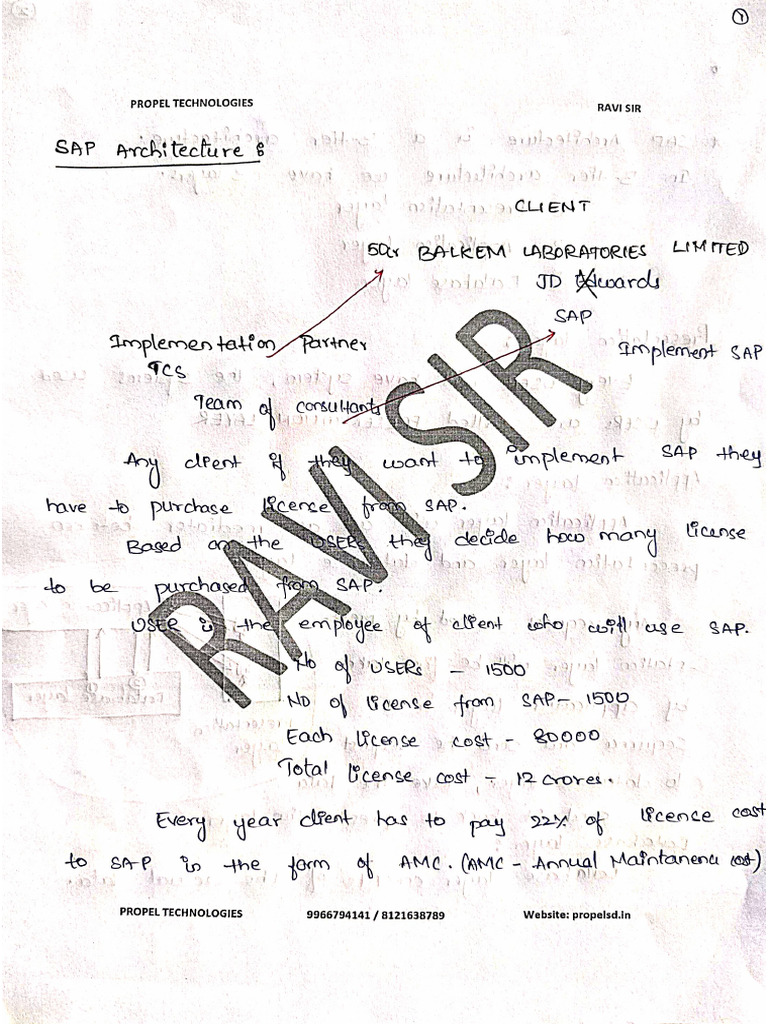 1
PROPEL TECHNOLOGIES RAVI SIR
SAP Architecture :
CLIENT
50cr BALKEM LABORATORIES LIMITED
JD Edwards
SAP
Implementation Partner
Implement SAP
TCS
Team of consultants
Any client if they want to implement SAP they
have to purchase license from SAP.
Based on the USERs they decide how many license
to be purchased from SAP.
USER is the employee of client who will use SAP.
No of USERs - 1500
No of license from SAP - 1500
Each license cost - 80000
Total license cost - 12 crores.
Every year client has to pay 22% of licence cost
to SAP in the form of AMC. (AMC - Annual Maintanena cost)
RAVI SIR
PROPEL TECHNOLOGIES 9966794141 / 8121638789 Website: propelsd.in